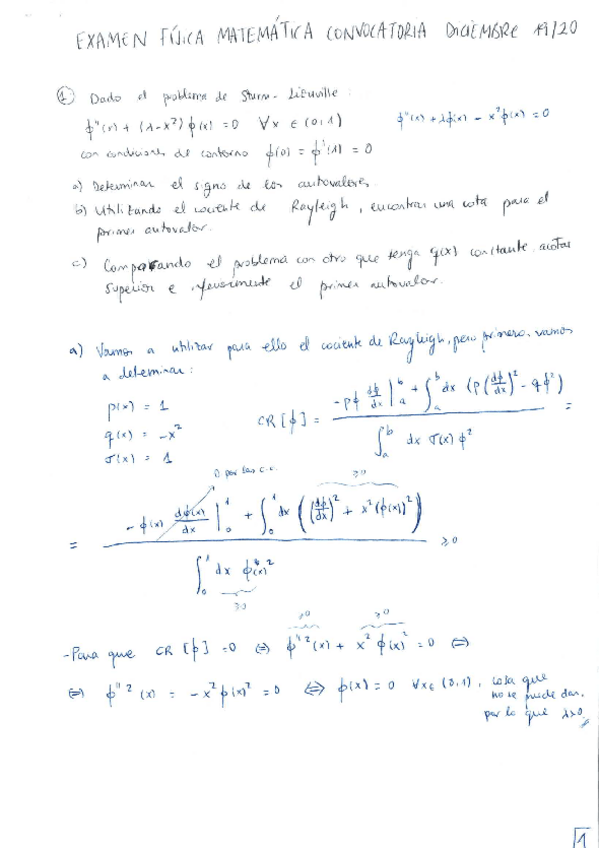 EXAMEN FÍSICA MATEMÁTICA CONVOCATORIA DICIEMBRE 19/20
① Dado el problema de Sturm-Liouville:
φ''(x) + (λ-x²) φ(x) = 0 ∀x ∈ (0,1) φ''(x) + λφ(x) - x²φ(x) = 0
con condiciones de contorno φ(0) = φ'(1) = 0
a) Determinar el signo de los autovalores.
b) Utilizando el cociente de Rayleigh, encontrar una cota para el
primer autovalor.
c) Comparando el problema con otro que tenga q(x) constante, acotar
superior e inferiormente el primer autovalor.
a) Vamos a utilizar para ello el cociente de Rayleigh, pero primero, vamos
a determinar:
p(x) = 1
q(x) = -x²
σ(x) = 1
CR[φ] = (-pφ dφ/dx |ₐᵇ + ∫ₐᵇ dx (p(dφ/dx)² - qφ²)) / (∫ₐᵇ dx σ(x) φ²) =
0 por las c.c. ≥0
= (-φ(x) dφ(x)/dx |₀¹ + ∫₀¹ dx ((dφ/dx)² + x²(φ(x))²)) / (∫₀¹ dx φ(x)²) ≥0
≥0
≥0 ≥0
- Para que CR[φ] = 0 ⇔ φ'²(x) + x² φ(x)² = 0 ⇔
⇔ φ'²(x) = -x² φ(x)² = 0 ⇔ φ(x) = 0 ∀x∈(0,1), cosa que
no se puede dar,
por lo que λ>0
1